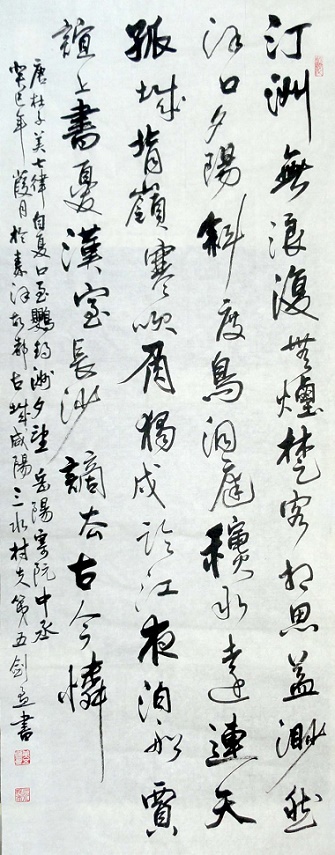 汀洲無浪復無煙楚客相思益渺然
漢口夕陽斜度鳥洞庭穐水遠連天
孤城背嶺寒吹角獨戍臨江夜泊船賈
誼上書憂漢室長沙謫去古今憐
唐杜子美七律自夏口至鸚鵡洲夕望岳陽寄阮中丞
癸巳年葭月於秦漢故都古城咸陽三水村夫第五剑書